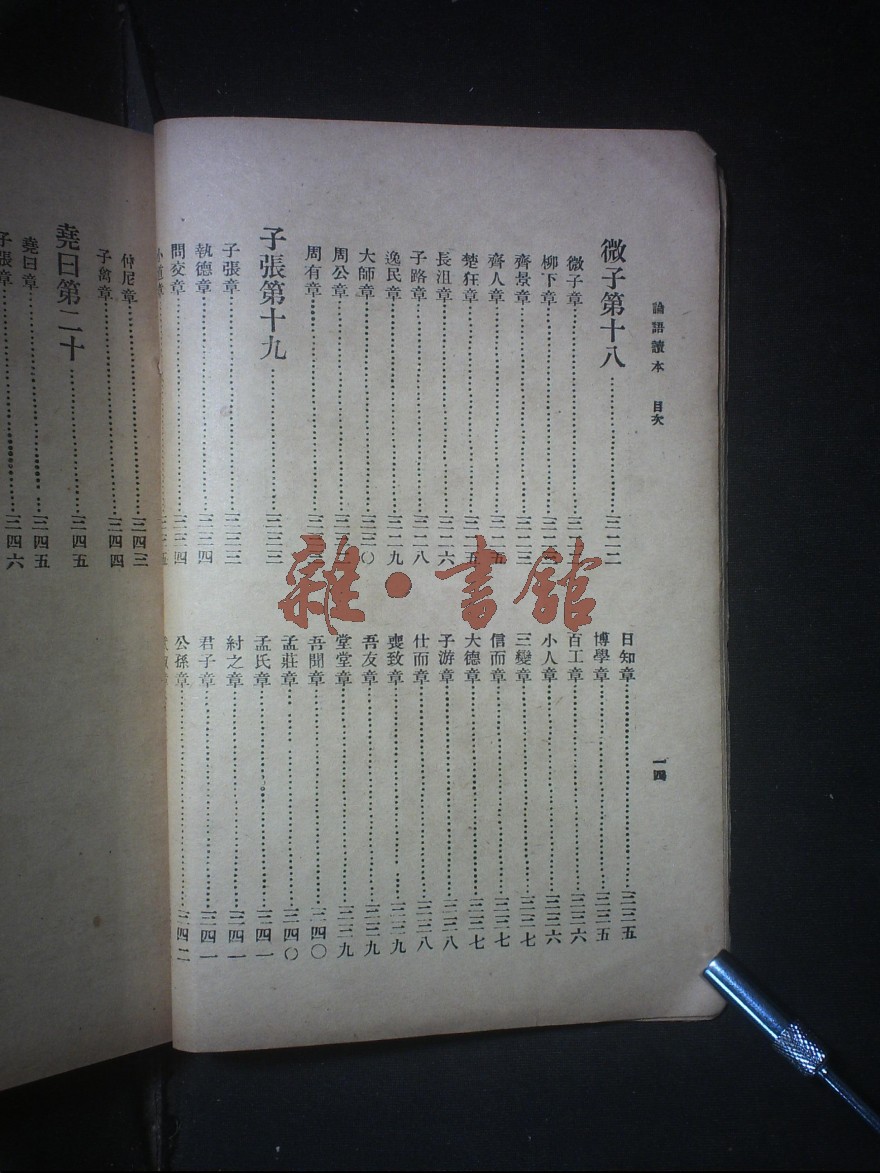 論語讀本 目次 一四
微子第十八……三二二
微子章……
柳下章……
齊景章……三二三
齊人章……
楚狂章……三二五
長沮章……三二六
子路章……三二八
逸民章……三二九
大師章……三三〇
周公章……
周有章……
子張第十九……三三三
子張章……三三三
執德章……三三四
問交章……三三四
日知章……三三五
博學章……三三五
百工章……三三六
小人章……三三六
三變章……三三七
信而章……三三七
大德章……三三七
子游章……三三八
仕而章……三三八
喪致章……三三九
吾友章……三三九
堂堂章……三三九
吾聞章……三四〇
孟莊章……三四〇
孟氏章……三四一
紂之章……三四一
君子章……三四一
公孫章……三四二
仲尼章……三四三
子禽章……三四四
堯曰第二十……三四五
堯曰章……三四五
子張章……三四六
雜·書館